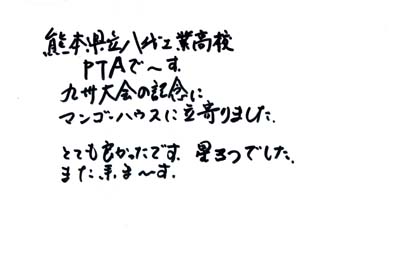 熊本県立八代工業高校
PTAで〜す。
九州大会の記念に
マンゴーハウスに立寄りました。
とても良かったです。星3つでした。
また来ま〜す。